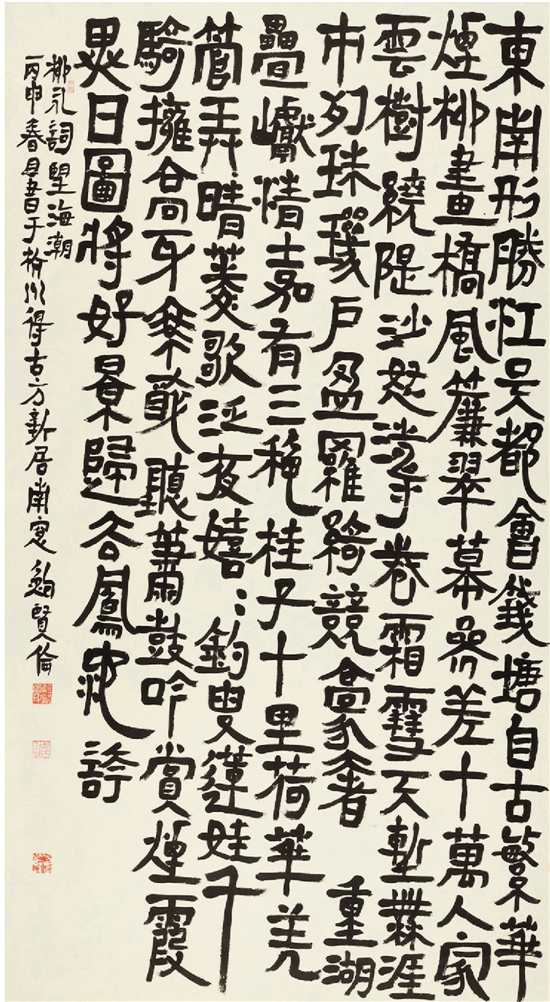 東南形勝江吳都會錢塘自古繁華
煙柳畫橋風簾翠幕參差十萬人家
雲樹繞隄沙怒濤卷霜雪天塹無涯
市列珠璣戶盈羅綺競豪奢 重湖
疊巘清嘉有三穐桂子十里荷華羌
管弄晴菱歌泛夜嬉〻釣叟蓮娃千
騎擁高牙乘醉聽蕭鼓吟賞煙霞
異日圖將好景歸去鳳池誇
柳永詞望海潮
丙申春月書于杭州得古方新居南窗 鮑賢倫